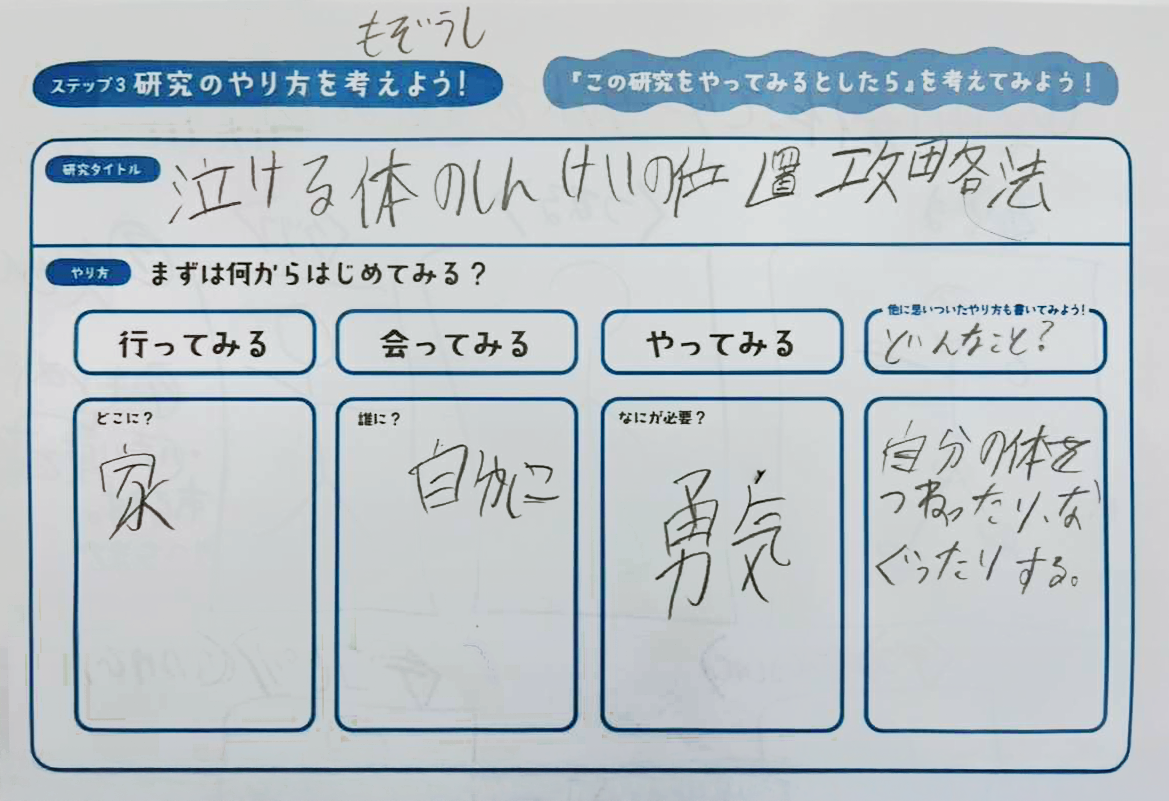 もぞうし
ステップ3 研究のやり方を考えよう!
『この研究をやってみるとしたら』を考えてみよう!
研究タイトル
泣ける体のしんけいの位置攻略法
やり方 まずは何からはじめてみる?
行ってみる
会ってみる
やってみる
他に思いついたやり方も書いてみよう!
どんなこと?
どこに?
家
誰に?
自分に
なにが必要?
勇気
自分の体を
つねったり、な
ぐったりする。